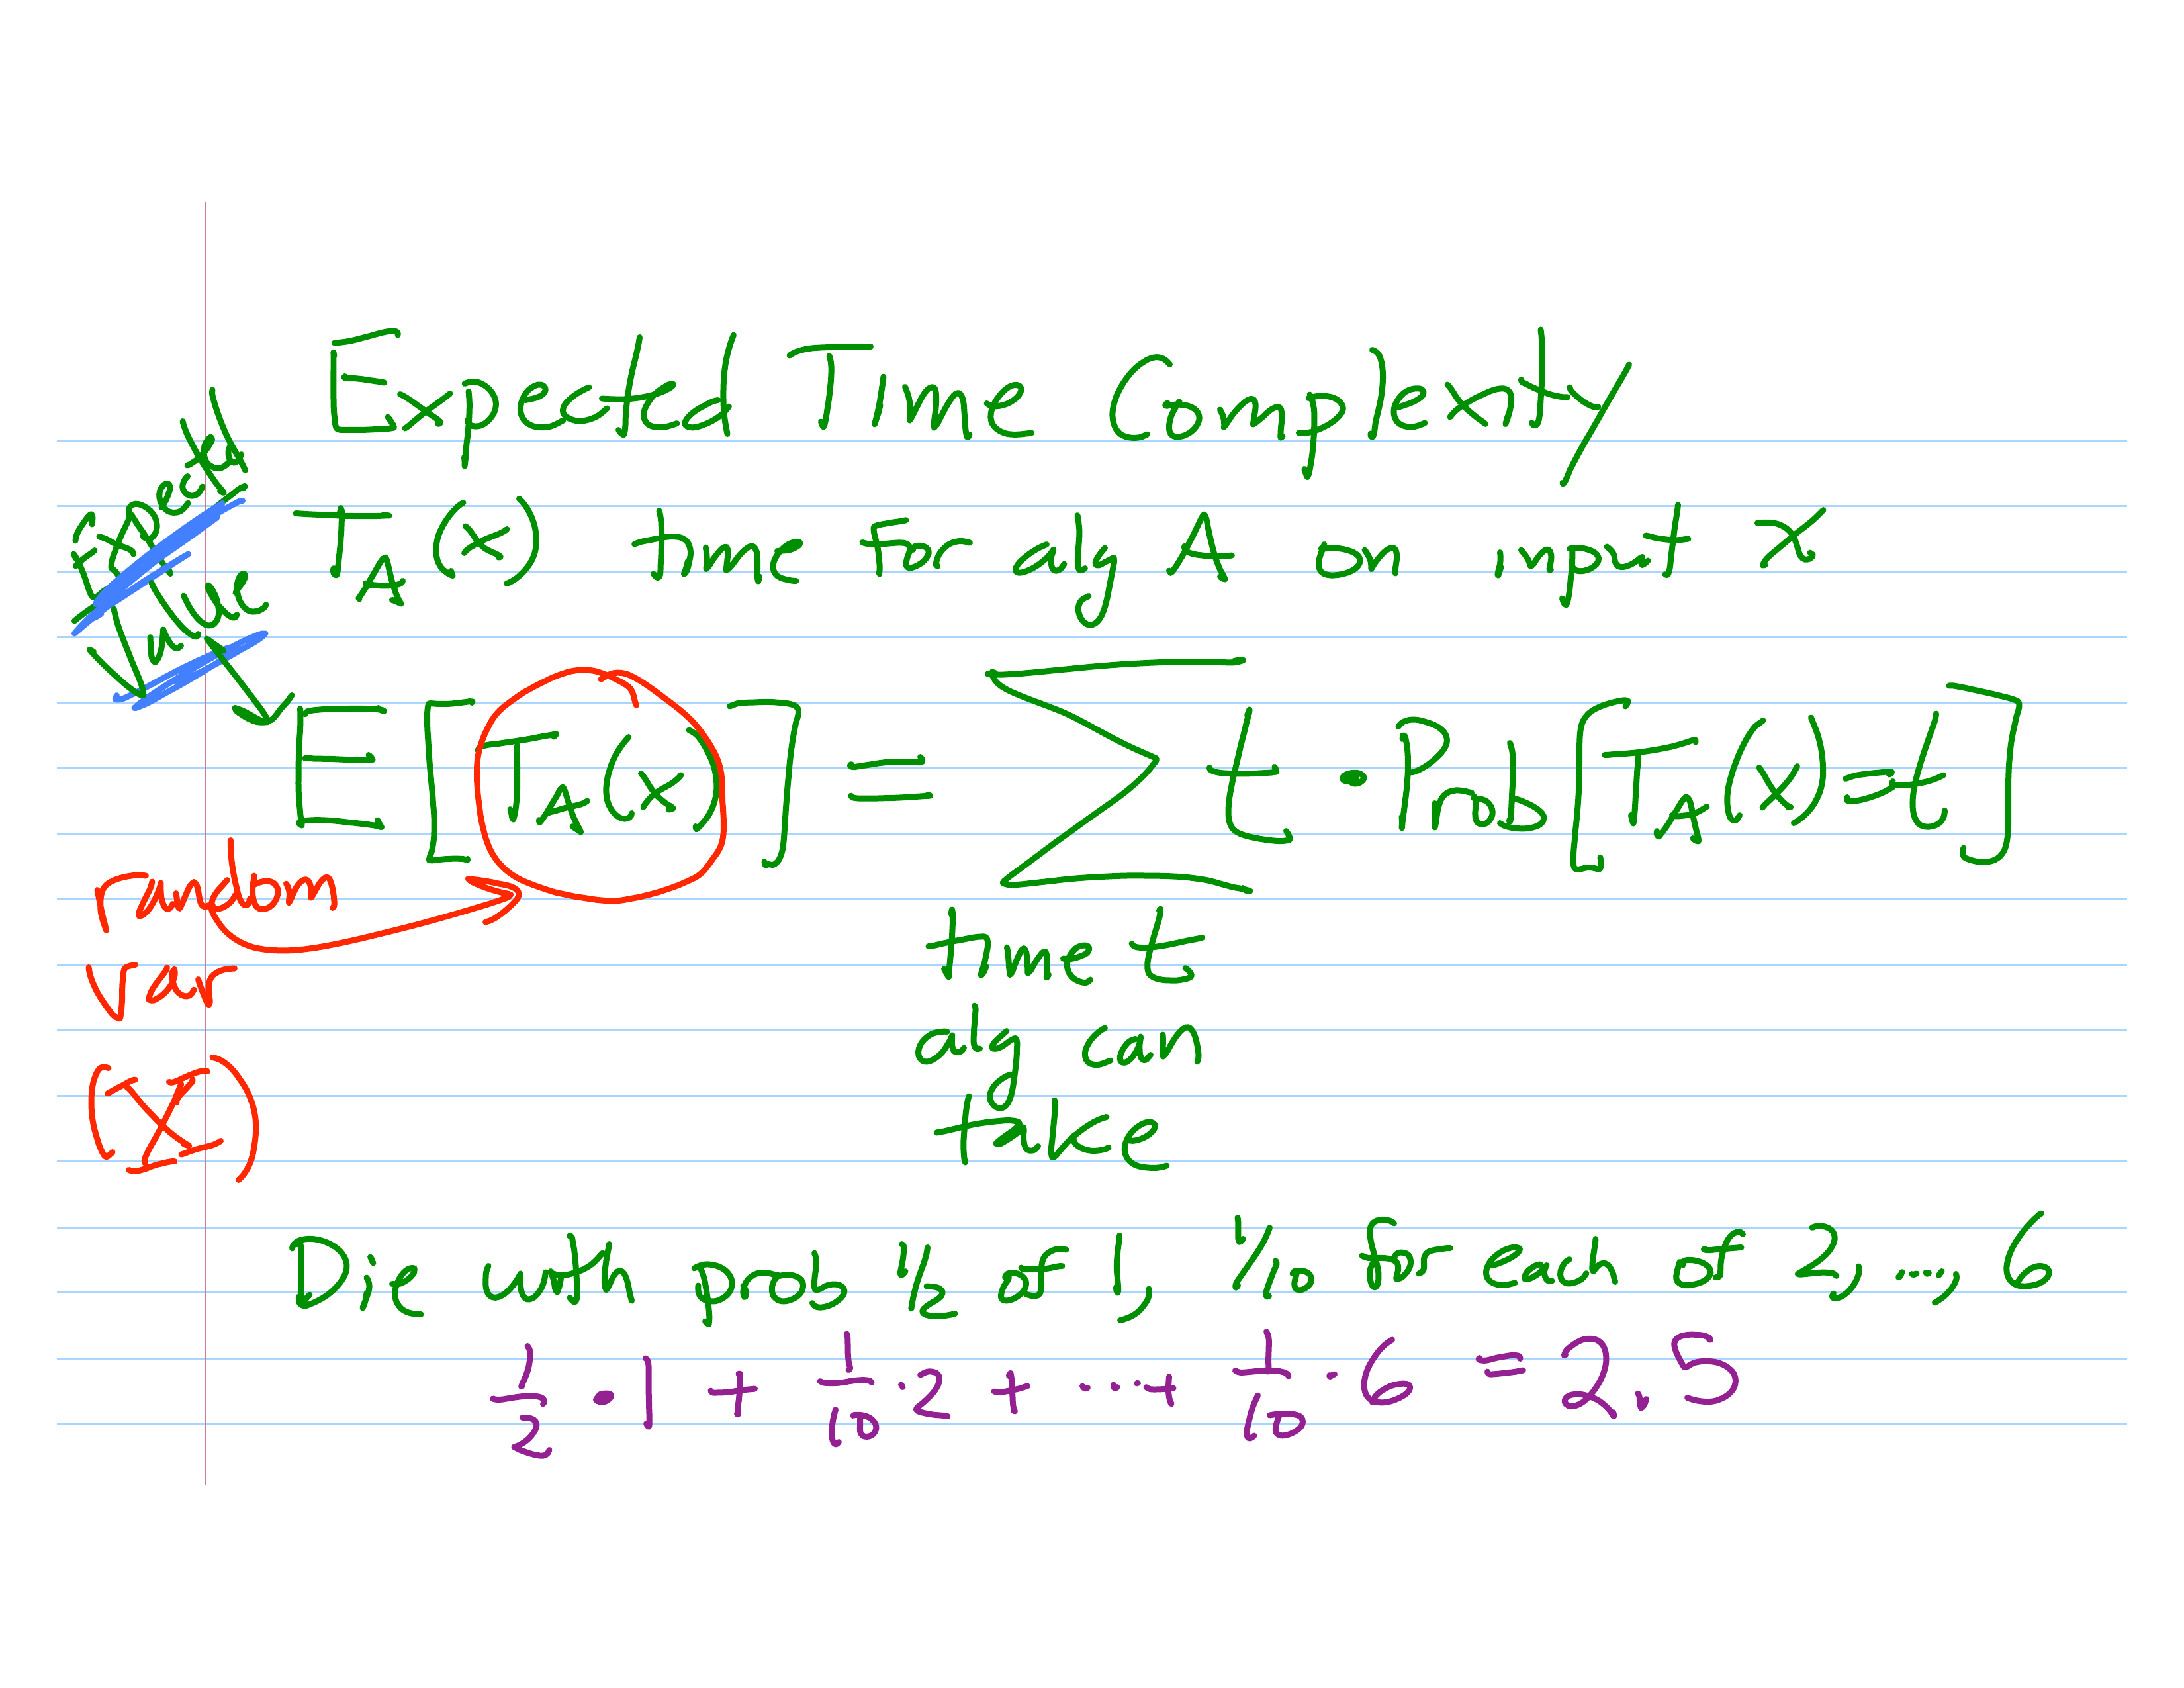 Expected Time Complexity
T_A(x) time for alg A on input x
Expected
Value
E[T_A(x)] = Σ t · Prob[T_A(x)=t]
time t
alg can
take
random
var
(X)
Die with prob 1/2 of 1, 1/10 for each of 2, ..., 6
1/2 · 1 + 1/10 · 2 + ... + 1/10 · 6 = 2.5